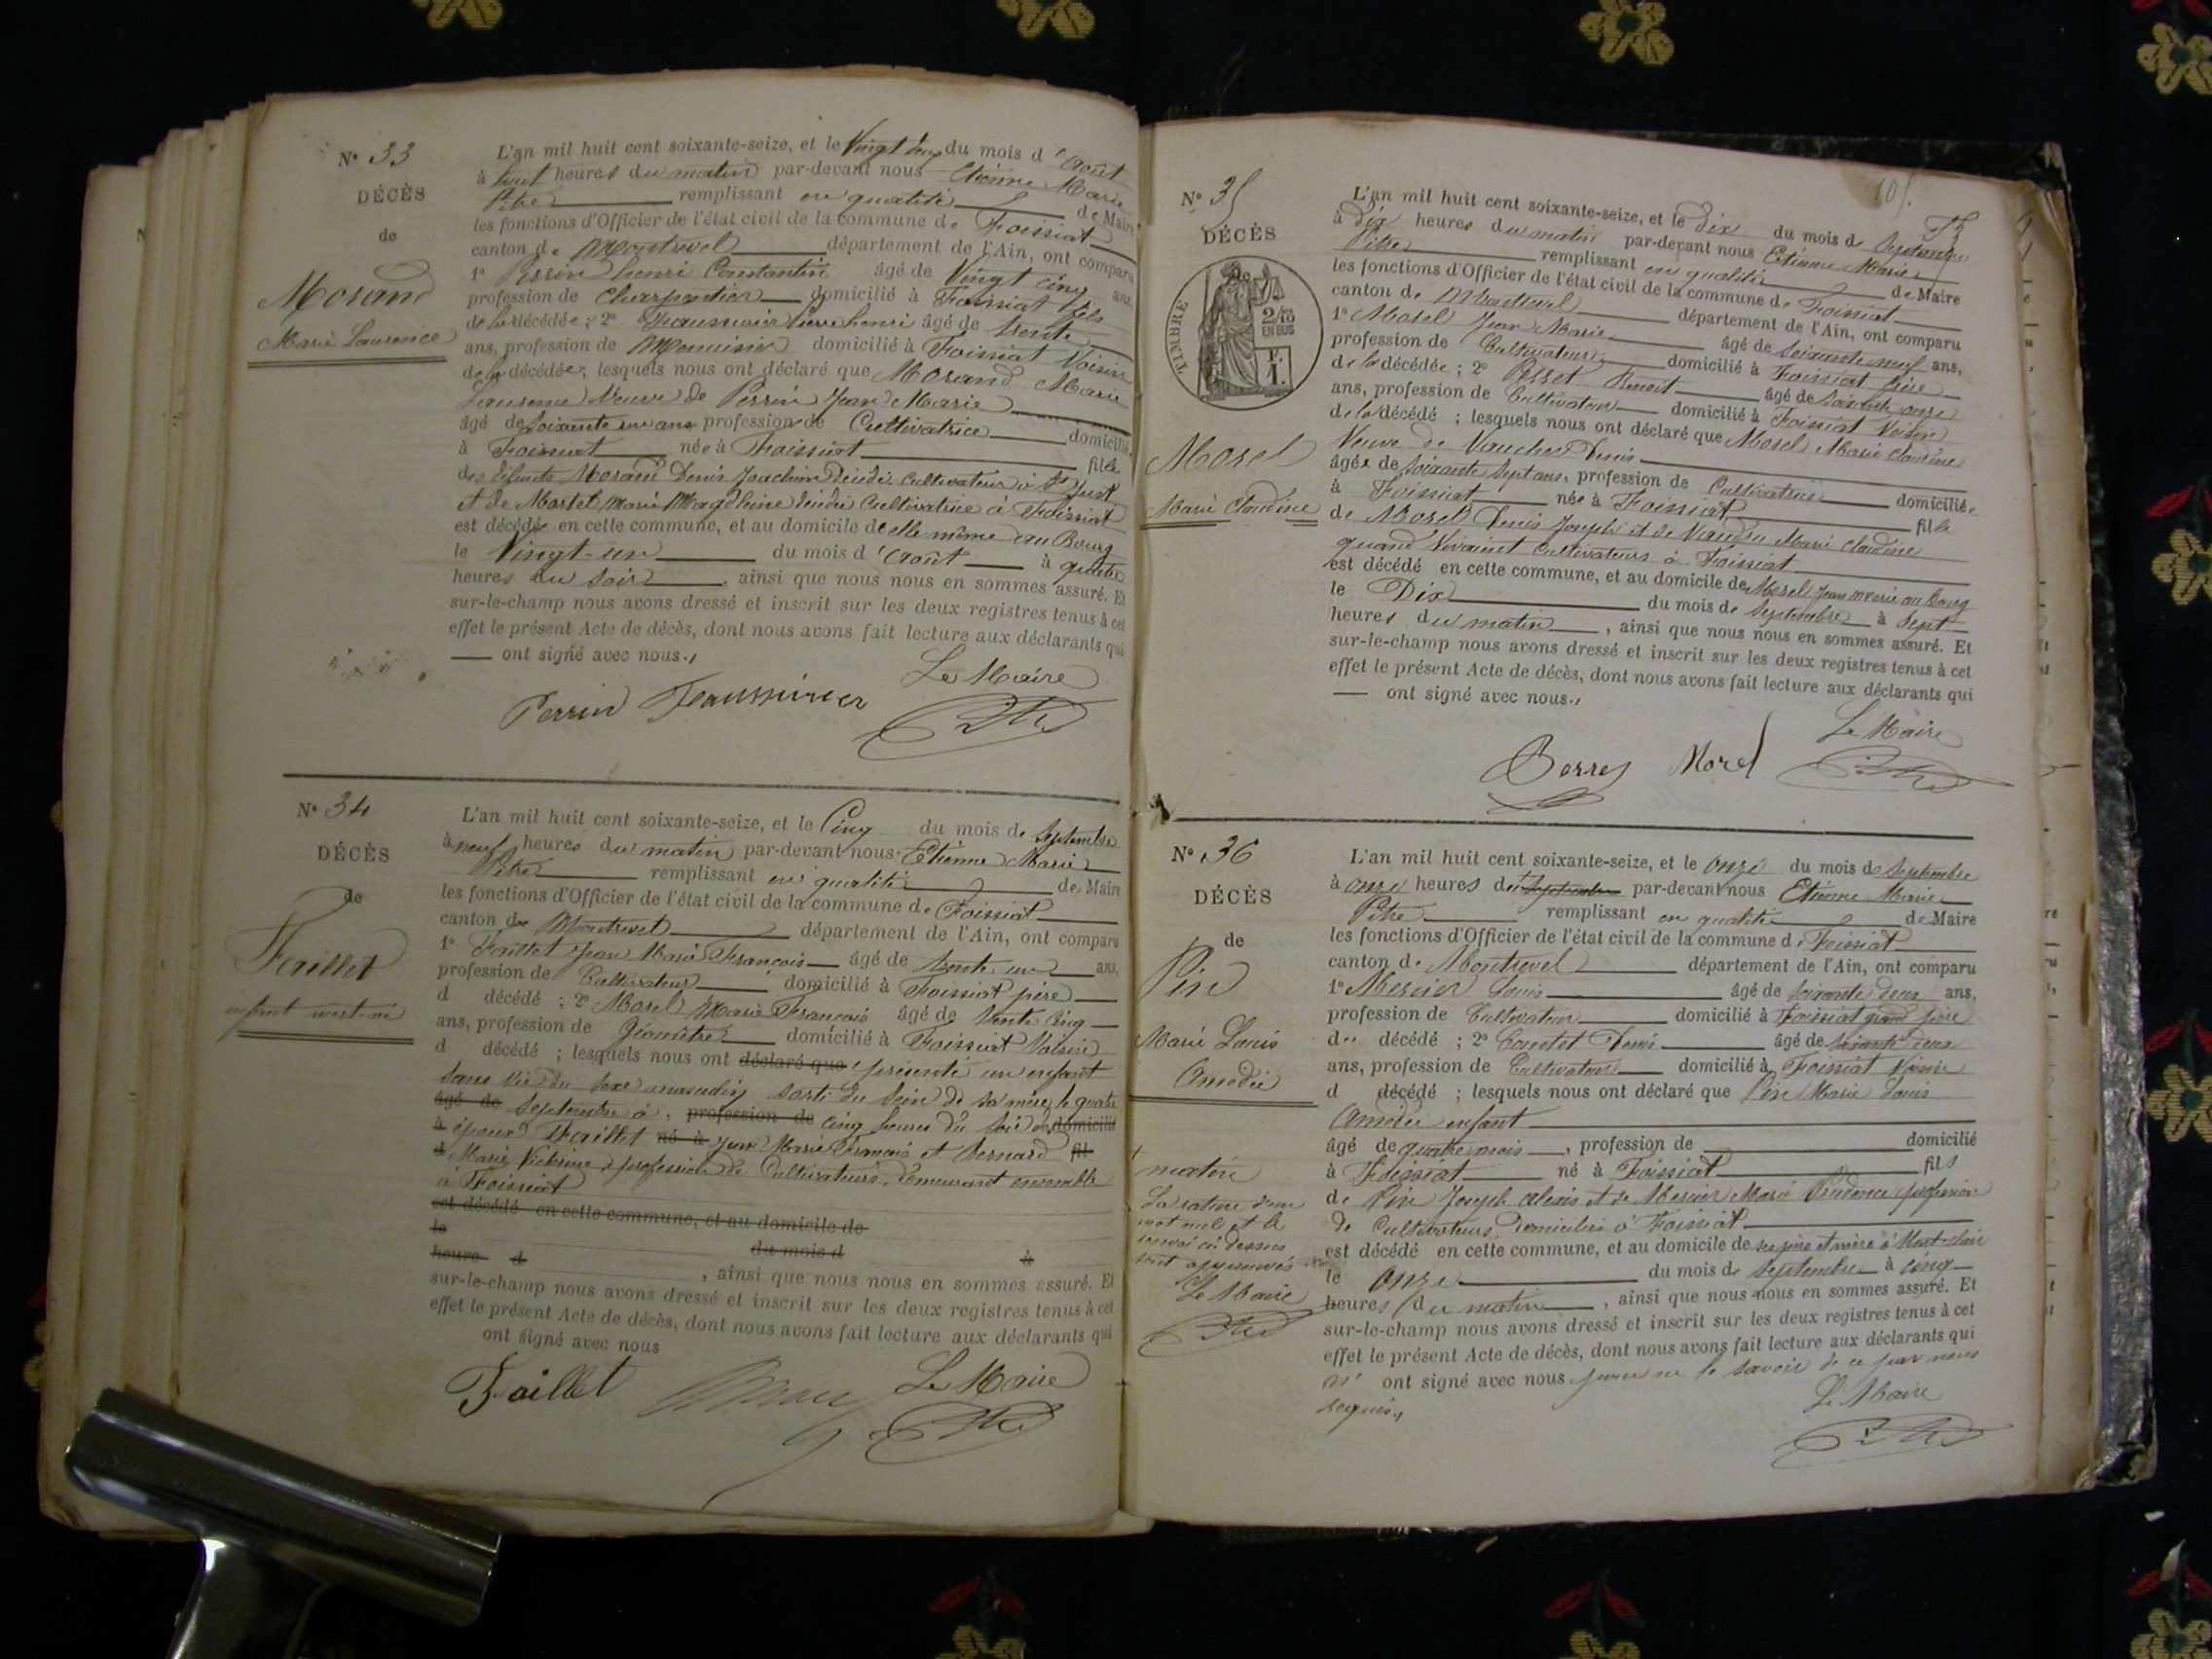 N° 33
DÉCÈS
de
Morand
Marie Laurence
L'an mil huit cent soixante-seize, et le Vingt deux du mois d'Août
à huit heures du matin par-devant nous Etienne Marie
Pitre remplissant en qualité de Maire
les fonctions d'Officier de l'état civil de la commune de Foissiat
canton de Montrevel département de l'Ain, ont comparu
1° Perrin henri Constantin âgé de Vingt cinq ans,
profession de Charpentier domicilié à Foissiat fils
de la décédée ; 2° Pierre henri âgé de trente
ans, profession de Menuisier domicilié à Foissiat Voisin
de la décédée, lesquels nous ont déclaré que Morand Marie
Laurence Veuve de Perrin Jean Marie
âgé de soixante un ans profession de Cultivatrice domicilié
à Foissiat née à Foissiat fille
des défunts Morand Denis Joachim Décédé Cultivateur à St Just
et de Martet Marie Magdeleine décédée Cultivatrice à Foissiat
est décédée en cette commune, et au domicile de elle même au Bourg
le Vingt-un du mois d'Août à quatre
heures du soir, ainsi que nous nous en sommes assuré. Et
sur-le-champ nous avons dressé et inscrit sur les deux registres tenus à cet
effet le présent Acte de décès, dont nous avons fait lecture aux déclarants qui
ont signé avec nous.
Le Maire
Perrin
N° 34
DÉCÈS
de
Faillet
L'an mil huit cent soixante-seize, et le Cinq du mois de Septembre
à neuf heures du matin par-devant nous Etienne Marie
Pitre remplissant en qualité de Maire
les fonctions d'Officier de l'état civil de la commune de Foissiat
canton de Montrevel département de l'Ain, ont comparu
1° Faillet Jean Marie François âgé de trente un ans,
profession de Cultivateur domicilié à Foissiat père
d décédé ; 2° Morel Marie François âgé de trente cinq
ans, profession de Géomètre domicilié à Foissiat Voisin
d décédé ; lesquels nous ont déclaré que présenté un enfant
sans vie du sexe masculin sorti du sein de sa mère le quatre
âgé de Septembre à profession de cinq heures du soir domicilié
à époux Faillet né à Jean Marie François et Bernard fil
d Marie Victorine profession de Cultivateurs demeurant ensemble
à Foissiat
est décédé en cette commune, et au domicile de
le du mois d à
heure d , ainsi que nous nous en sommes assuré. Et
sur-le-champ nous avons dressé et inscrit sur les deux registres tenus à cet
effet le présent Acte de décès, dont nous avons fait lecture aux déclarants qui
ont signé avec nous
Faillet Le Maire
105.
N° 35
DÉCÈS
TIMBRE
2/10
EN SUS
Morel
Marie Claudine
L'an mil huit cent soixante-seize, et le Dix du mois de Septembre
à Dix heures du matin par-devant nous Etienne Marie
Pitre remplissant en qualité de Maire
les fonctions d'Officier de l'état civil de la commune de Foissiat
canton de Montrevel département de l'Ain, ont comparu
1° Morel Jean Marie âgé de soixante neuf ans,
profession de Cultivateur domicilié à Foissiat frère
de la décédée ; 2° Perret Benoit âgé de soixante onze
ans, profession de Cultivateur domicilié à Foissiat Voisin
de la décédé ; lesquels nous ont déclaré que Morel Marie Claudine
Veuve de Vaucher Denis
âgée de soixante sept ans, profession de Cultivatrice domiciliée
à Foissiat née à Foissiat fille
de Morel Denis Joseph et de Marie Claudine
quand Vivaient Cultivateurs à Foissiat
est décédé en cette commune, et au domicile de Morel Jean Marie au Bourg
le Dix du mois de Septembre à sept
heures du matin, ainsi que nous nous en sommes assuré. Et
sur-le-champ nous avons dressé et inscrit sur les deux registres tenus à cet
effet le présent Acte de décès, dont nous avons fait lecture aux déclarants qui
ont signé avec nous.
Le Maire
Morel
N° 36
DÉCÈS
de
Pin
Marie Louis
Amédée
L'an mil huit cent soixante-seize, et le onze du mois de Septembre
à onze heures du Septembre par-devant nous Etienne Marie
Pitre remplissant en qualité de Maire
les fonctions d'Officier de l'état civil de la commune de Foissiat
canton de Montrevel département de l'Ain, ont comparu
1° Mercier Louis âgé de soixante deux ans,
profession de Cultivateur domicilié à Foissiat grand père
du décédé ; 2° Denis âgé de soixante deux
ans, profession de Cultivateur domicilié à Foissiat Voisin
d décédé ; lesquels nous ont déclaré que Pin Marie Louis
Amédée enfant
âgé de quatre mois, profession de domicilié
à Foissiat né à Foissiat fils
de Pin Joseph Alexis et de Mercier Marie Prudence profession
de Cultivateurs domiciliés à Foissiat
est décédé en cette commune, et au domicile de ses père et mère à
le onze du mois de Septembre à cinq
heures du matin, ainsi que nous nous en sommes assuré. Et
sur-le-champ nous avons dressé et inscrit sur les deux registres tenus à cet
effet le présent Acte de décès, dont nous avons fait lecture aux déclarants qui
n' ont signé avec nous pour ne le savoir de ce par nous
requis.
Le Maire
matin
La rature d'un
mot nul et le
renvoi ci dessus
sont approuvés
Le Maire